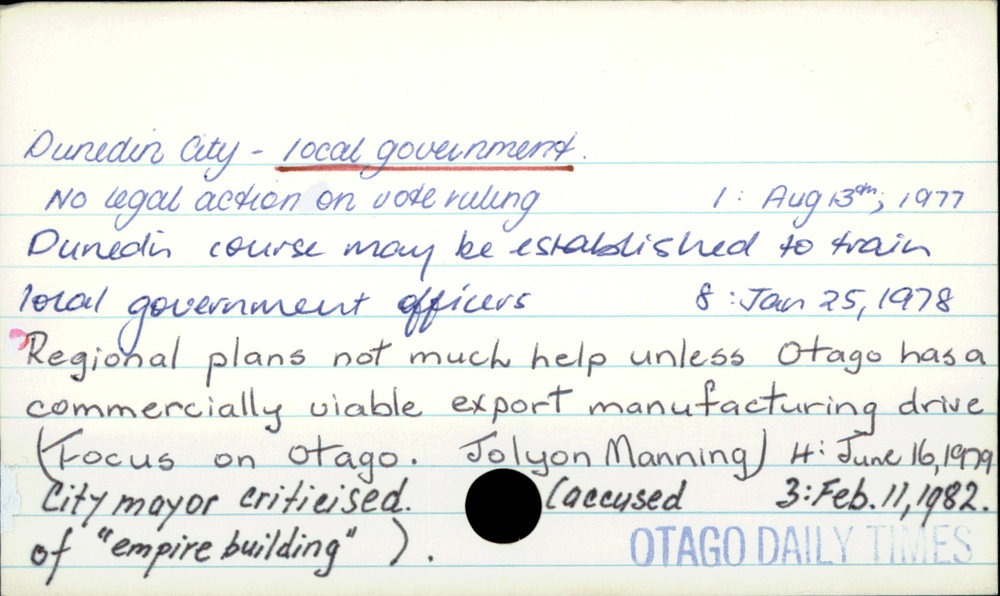 Dunedin City - local government.
No legal action on vote ruling 1: Aug 13th, 1977
Dunedin course may be established to train
local government officers 8: Jan 25, 1978
Regional plans not much help unless Otago has a
commercially viable export manufacturing drive
(Focus on Otago. Jolyon Manning) 4: June 16, 1979
City mayor criticised. (accused 3: Feb. 11, 1982.
of "empire building" ).
OTAGO DAILY TIMES